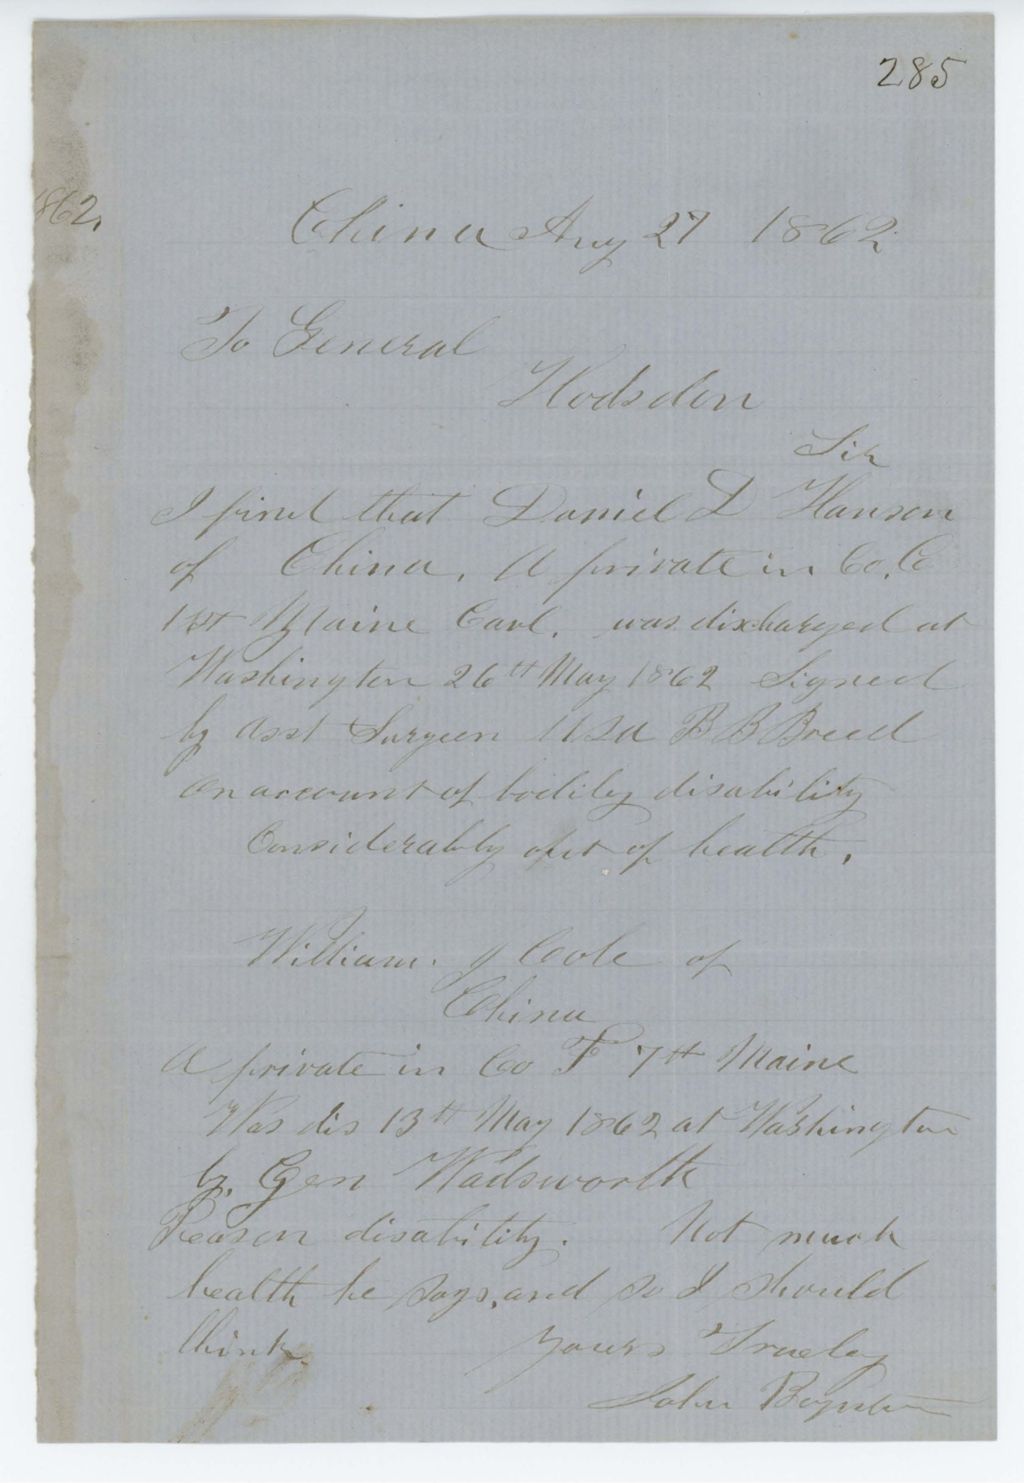 285
1862,
China Aug 27 1862
To General
Hodsdon
Sir
I find that Daniel D Hanson
of China, A private in Co, C
1st Maine Cavl, was discharged at
Washington 26th May 1862 Signed
by Asst Surgeon USA B B Breed
On account of bodily disability
Considerably out of health,
William. J Cole of
China
A private in Co F 7th Maine
Was dis 13th May 1862 at Washington
by, Gen Wadsworth
Reason disability. Not much
health he says, and so I should
think Yours Trueley
John Boynton